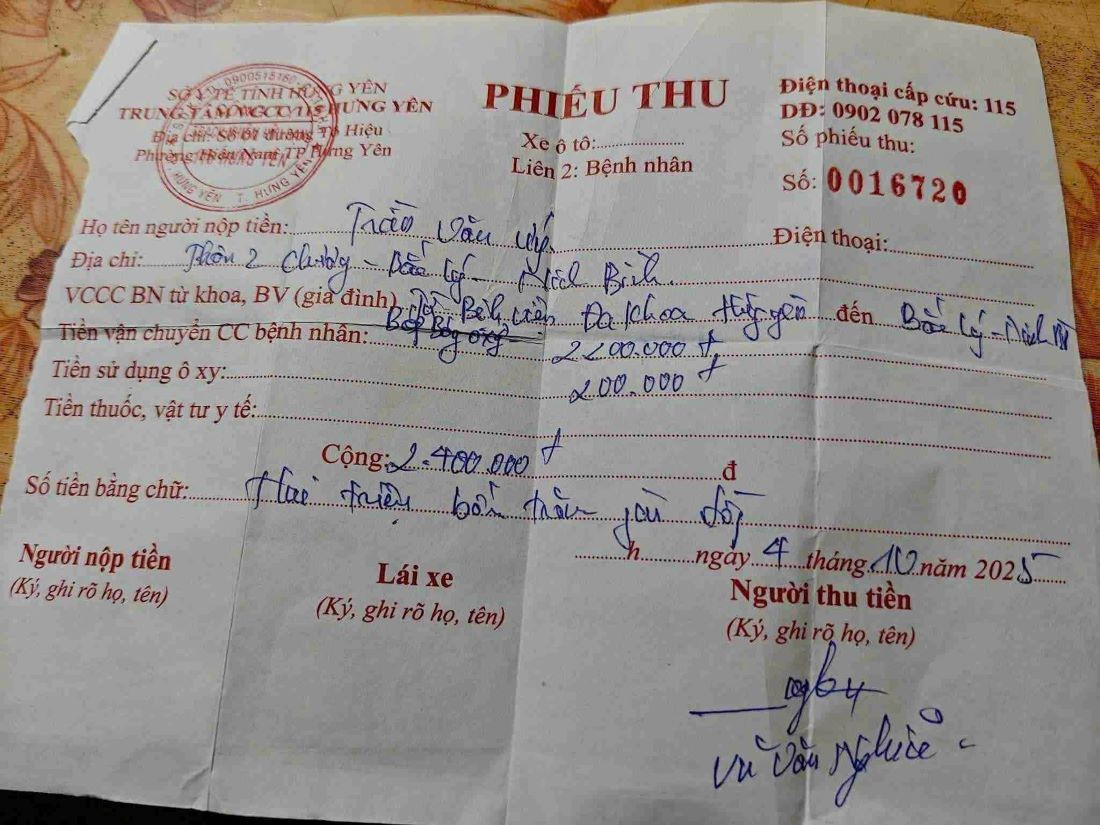 SỞ Y TẾ TỈNH HƯNG YÊN
TRUNG TÂM VCCC 115 HƯNG YÊN
Địa chỉ: Số 01 đường Tô Hiệu
Phường Hiến Nam TP Hưng Yên
0900515160
T. HƯNG YÊN
PHIẾU THU
Xe ô tô:
Liên 2: Bệnh nhân
Điện thoại cấp cứu: 115
DĐ: 0902 078 115
Số phiếu thu:
Số: 0016720
Họ tên người nộp tiền: Trần Văn Điện thoại:
Địa chỉ: Thôn 2 - Bắc Lý - Ninh Bình
VCCC BN từ khoa, BV (gia đình) Từ Bệnh viện Đa khoa Hưng yên đến Bắc Lý - Ninh
Tiền vận chuyển CC bệnh nhân: 2200.000 đ
Tiền sử dụng ô xy: 200.000 đ
Tiền thuốc, vật tư y tế:
Cộng: 2.400.000 đ đ
Số tiền bằng chữ: Hai triệu bốn trăm đồng
h ngày 4 tháng 10 năm 2025
Người nộp tiền
(Ký, ghi rõ họ, tên)
Lái xe
(Ký, ghi rõ họ, tên)
Người thu tiền
(Ký, ghi rõ họ, tên)
Vũ Văn